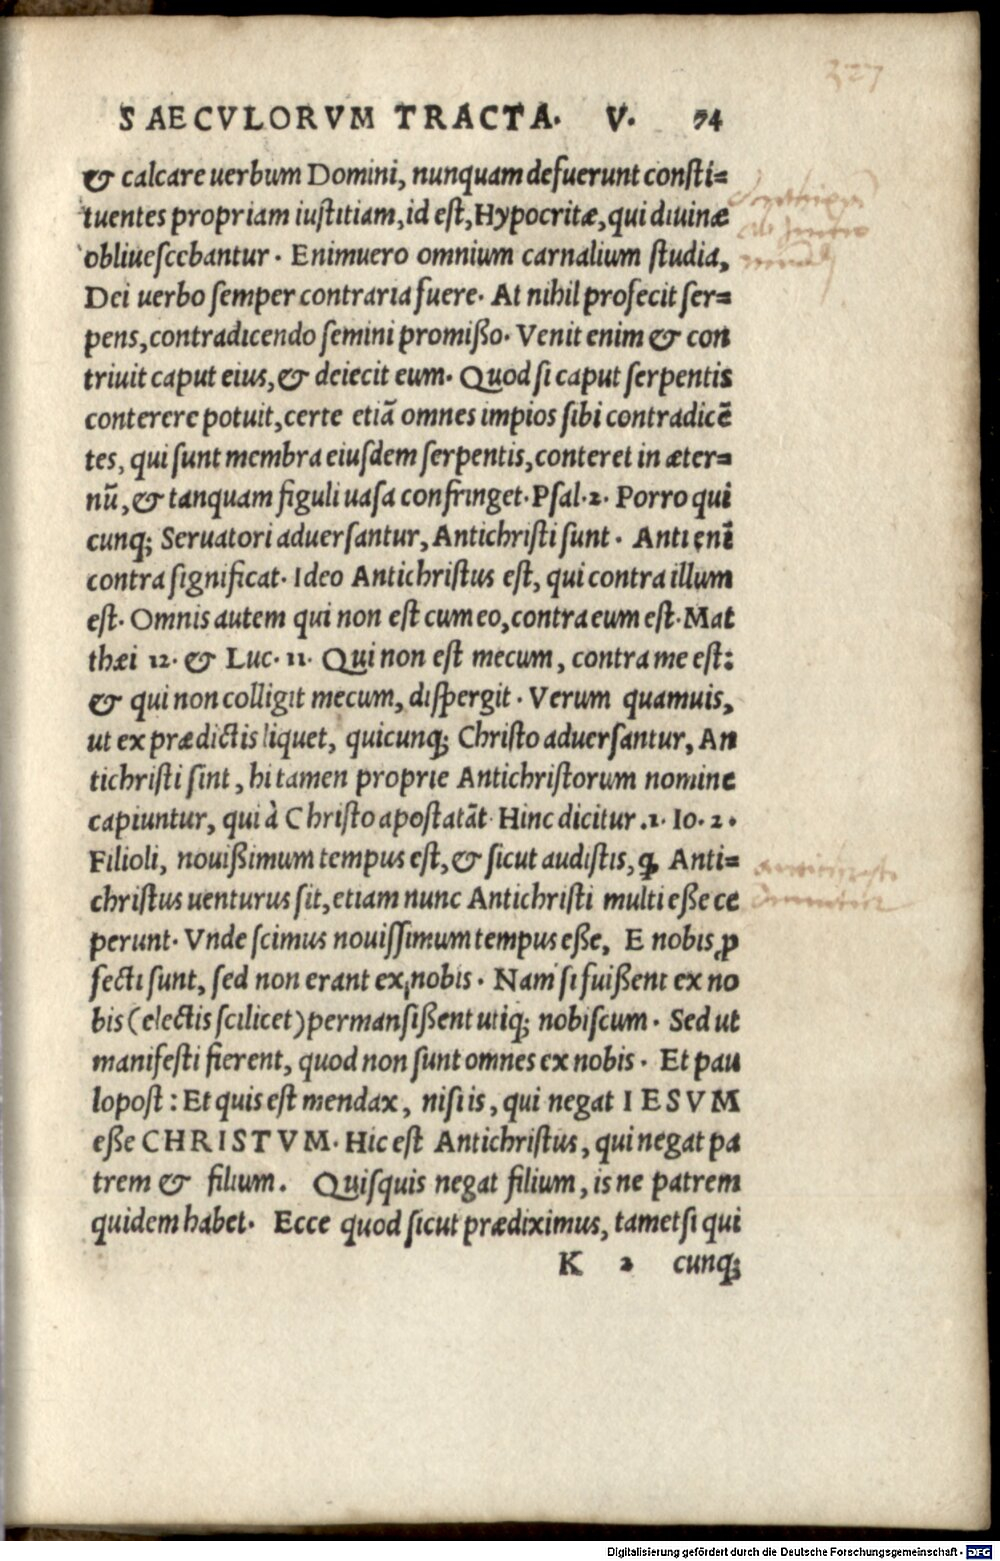 327
SAECVLORVM TRACTA. V. 74
& calcare uerbum Domini, nunquam defuerunt consti=
tuentes propriam iustitiam, id est, Hypocritæ, qui diuinæ
obliuescebantur. Enimuero omnium carnalium studia,
Dei uerbo semper contraria fuere. At nihil profecit ser=
pens, contradicendo semini promißo. Venit enim & con
triuit caput eius, & deiecit eum. Quod si caput serpentis
conterere potuit, certe etiã omnes impios sibi contradicẽ
tes, qui sunt membra eiusdem serpentis, conteret in æter=
nũ, & tanquam figuli uasa confringet. Psal. 2. Porro qui
cunq; Seruatori aduersantur, Antichristi sunt. Anti enĩ
contra significat. Ideo Antichristus est, qui contra illum
est. Omnis autem qui non est cum eo, contra eum est. Mat
thæi 12. & Luc. 11. Qui non est mecum, contra me est:
& qui non colligit mecum, dispergit. Verum quamuis,
ut ex prædictis liquet, quicunq; Christo aduersantur, An
tichristi sint, hi tamen proprie Antichristorum nomine
capiuntur, qui à Christo apostatãt. Hinc dicitur .1. Io. 2.
Filioli, nouißimum tempus est, & sicut audistis, ꝙ Anti=
christus uenturus sit, etiam nunc Antichristi multi eße ce
perunt. Vnde scimus nouissimum tempus eße, E nobis ꝓ
fecti sunt, sed non erant ex nobis. Nam si fuißent ex no
bis (electis scilicet) permansißent utiq; nobiscum. Sed ut
manifesti fierent, quod non sunt omnes ex nobis. Et pau
lopost: Et quis est mendax, nisi is, qui negat IESVM
eße CHRISTVM. Hic est Antichristus, qui negat pa
trem & filium. Quisquis negat filium, is ne patrem
quidem habet. Ecce quod sicut prædiximus, tametsi qui
K 2 cunq;
Digitalisierung gefördert durch die Deutsche Forschungsgemeinschaft - DFG